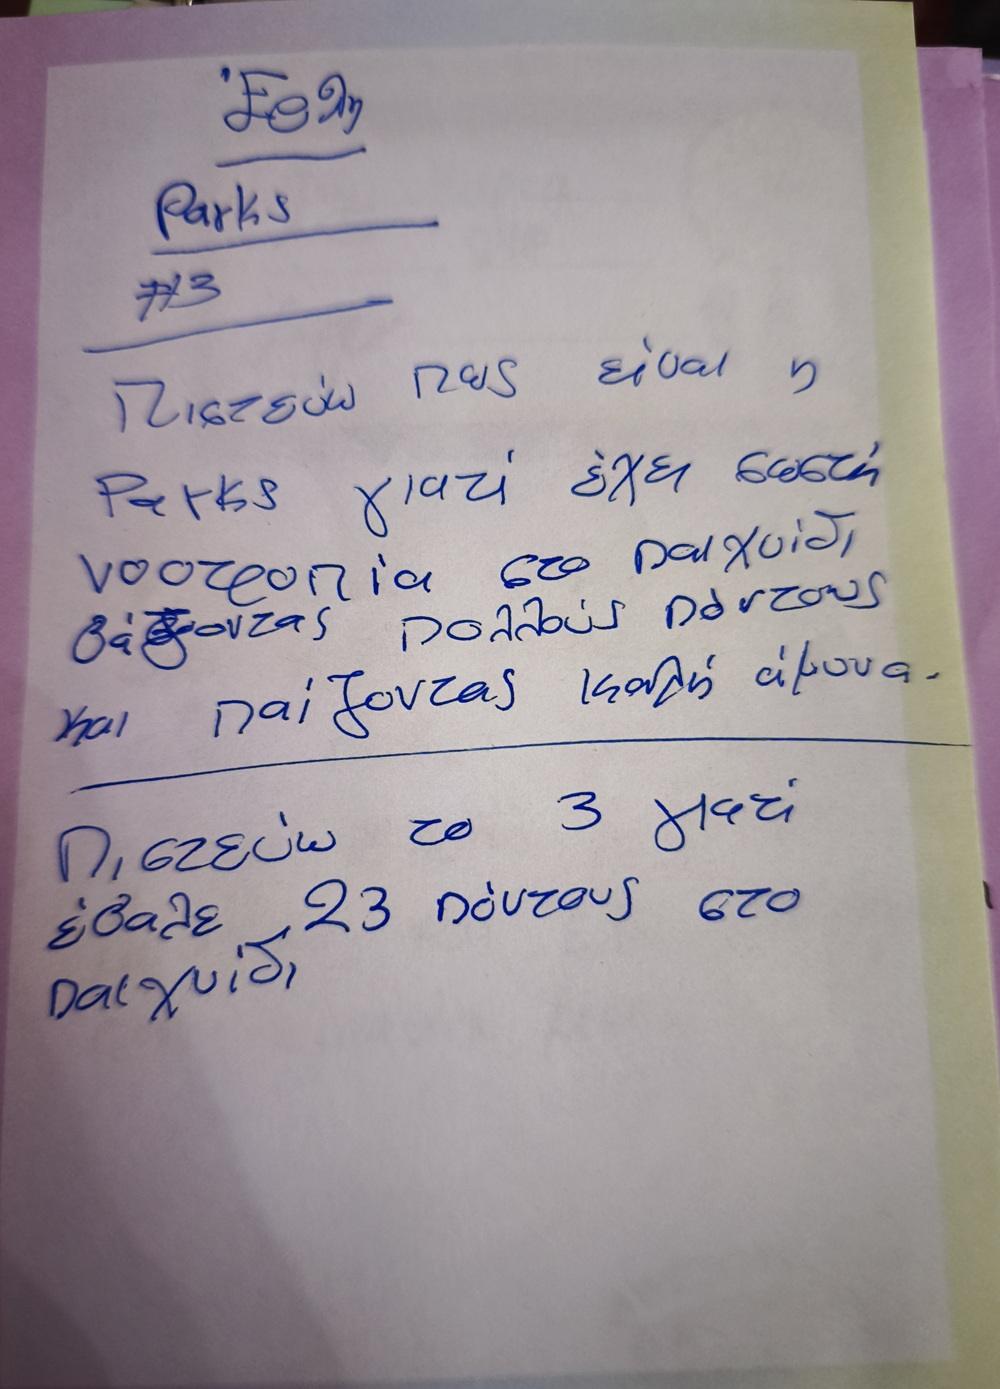 Έθλη
Parks
#3
Πιστεύω πως είναι η
Parks γιατί έχει σωστή
νοοτροπία στο παιχνίδι
βάζοντας πολλούς πόντους
και παίζοντας καλή άμυνα.
Πιστεύω το 3 γιατί
έβαλε 23 πόντους στο
παιχνίδι